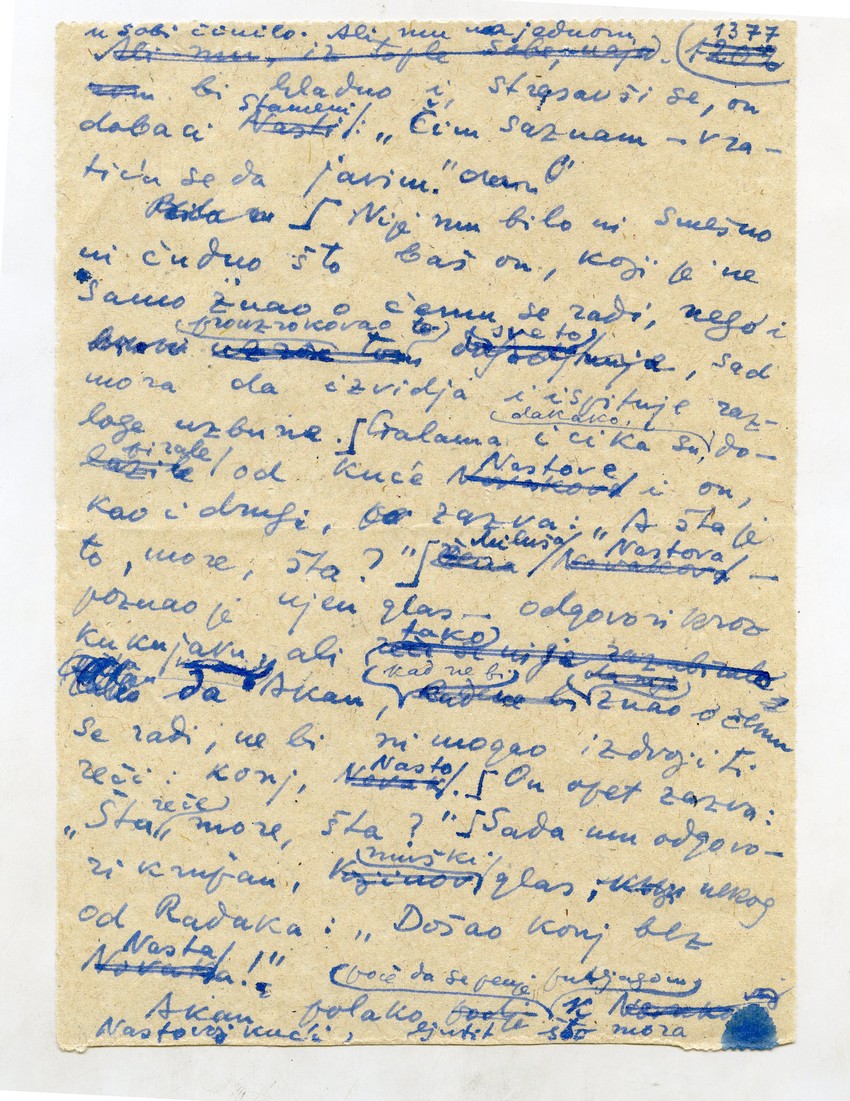 u sobi činilo. Ali mu najednom 1377
Ali mu, iz tople sobe, naja. 1202
bi hladno i, stresavši se, on
dobaci Stameni Nasti: „Čim saznam – vra-
tiću se da javim."
Nije mu bilo ni smešno
ni čudno što baš on, koji je ne
samo znao o čemu se radi, nego i
prouzrokovao to sve to
uzrok tom, sad
mora da izvidja i ispituje raz-
dakako,
loge uzbune. Galama i cika su, do-
birale
lazile od kuće Nastove Novakove i on,
kao i drugi, zazva: „A šta je
to, more, šta?" Miluša Nastova Novakova –
poznao je njen glas – odgovori kroz
kuknjavu, ali tako
da Akan, kad ne bi kad ne bi znao o čemu
se radi, ne bi ni mogao izdvojiti
reči: konj, Nasto Novak. On opet zazva:
„Šta, reče, more, šta?" Sada mu odgovo-
ri krupan, muški glas, nekog
od Radaka: „Došao konj bez
Nasta Novaka!"
poče da se penje putjagom
Akan polako podje k Novako
Nastovoj kući, ljutit što mora